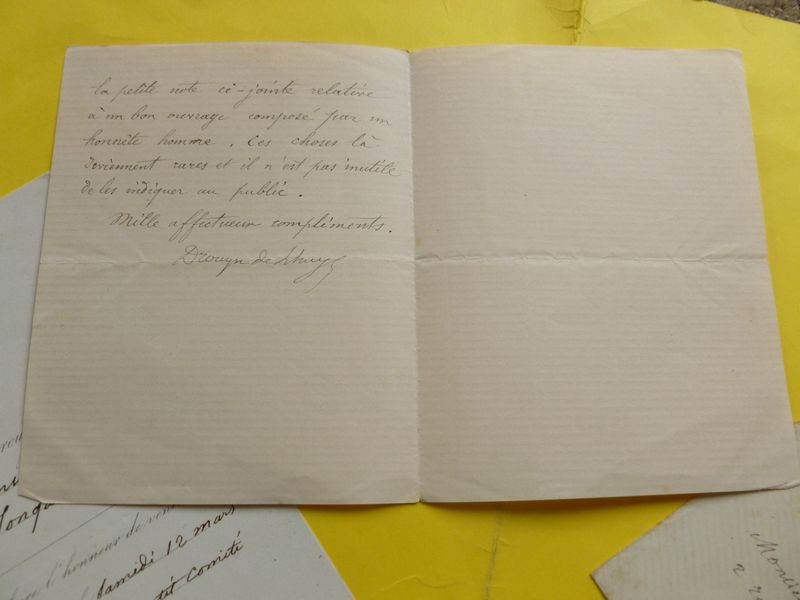 la petite note ci-jointe relative
à un bon ouvrage composé par un
honnête homme. Ces choses là
deviennent rares et il n'est pas inutile
de les indiquer au public.
Mille affectueux compliments.
Drouyn de Lhuys
l'honneur de
Samedi 12 mars
Comité